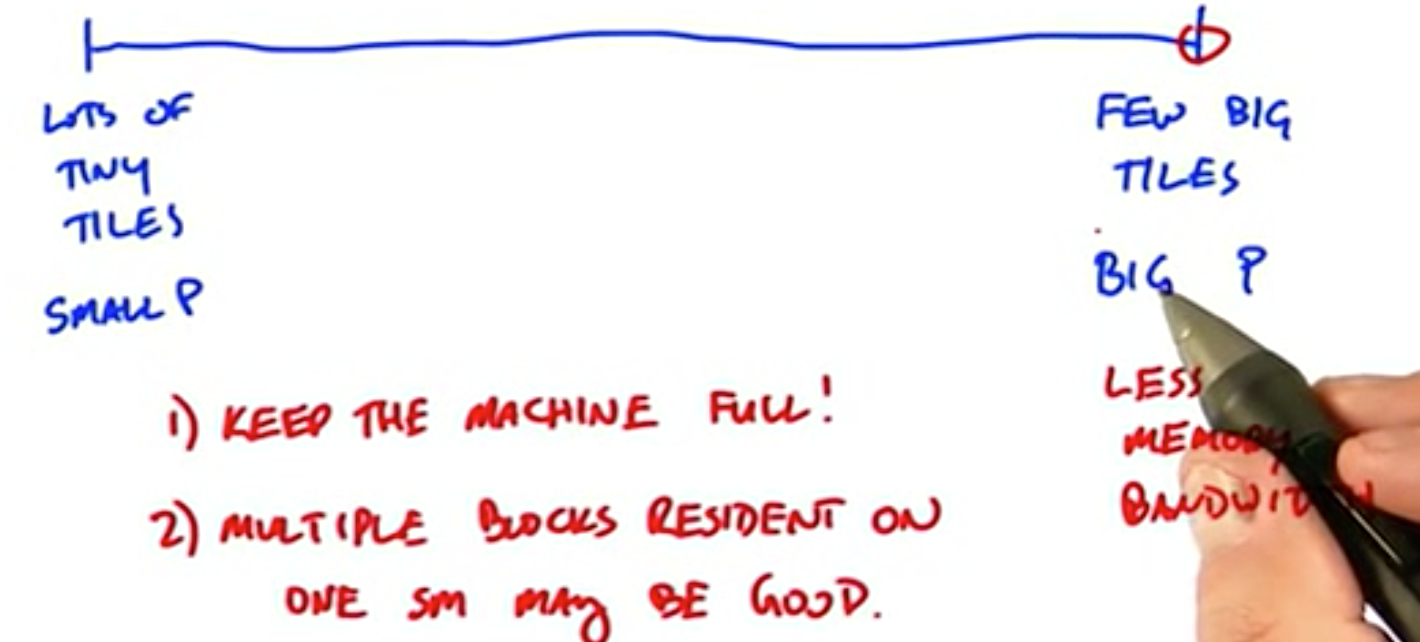 LOTS OF
TINY
TILES
SMALL P
FEW BIG
TILES
BIG P
LESS
MEMORY
BANDWIDTH
1) KEEP THE MACHINE FULL!
2) MULTIPLE BLOCKS RESIDENT ON
ONE SM MAY BE GOOD.